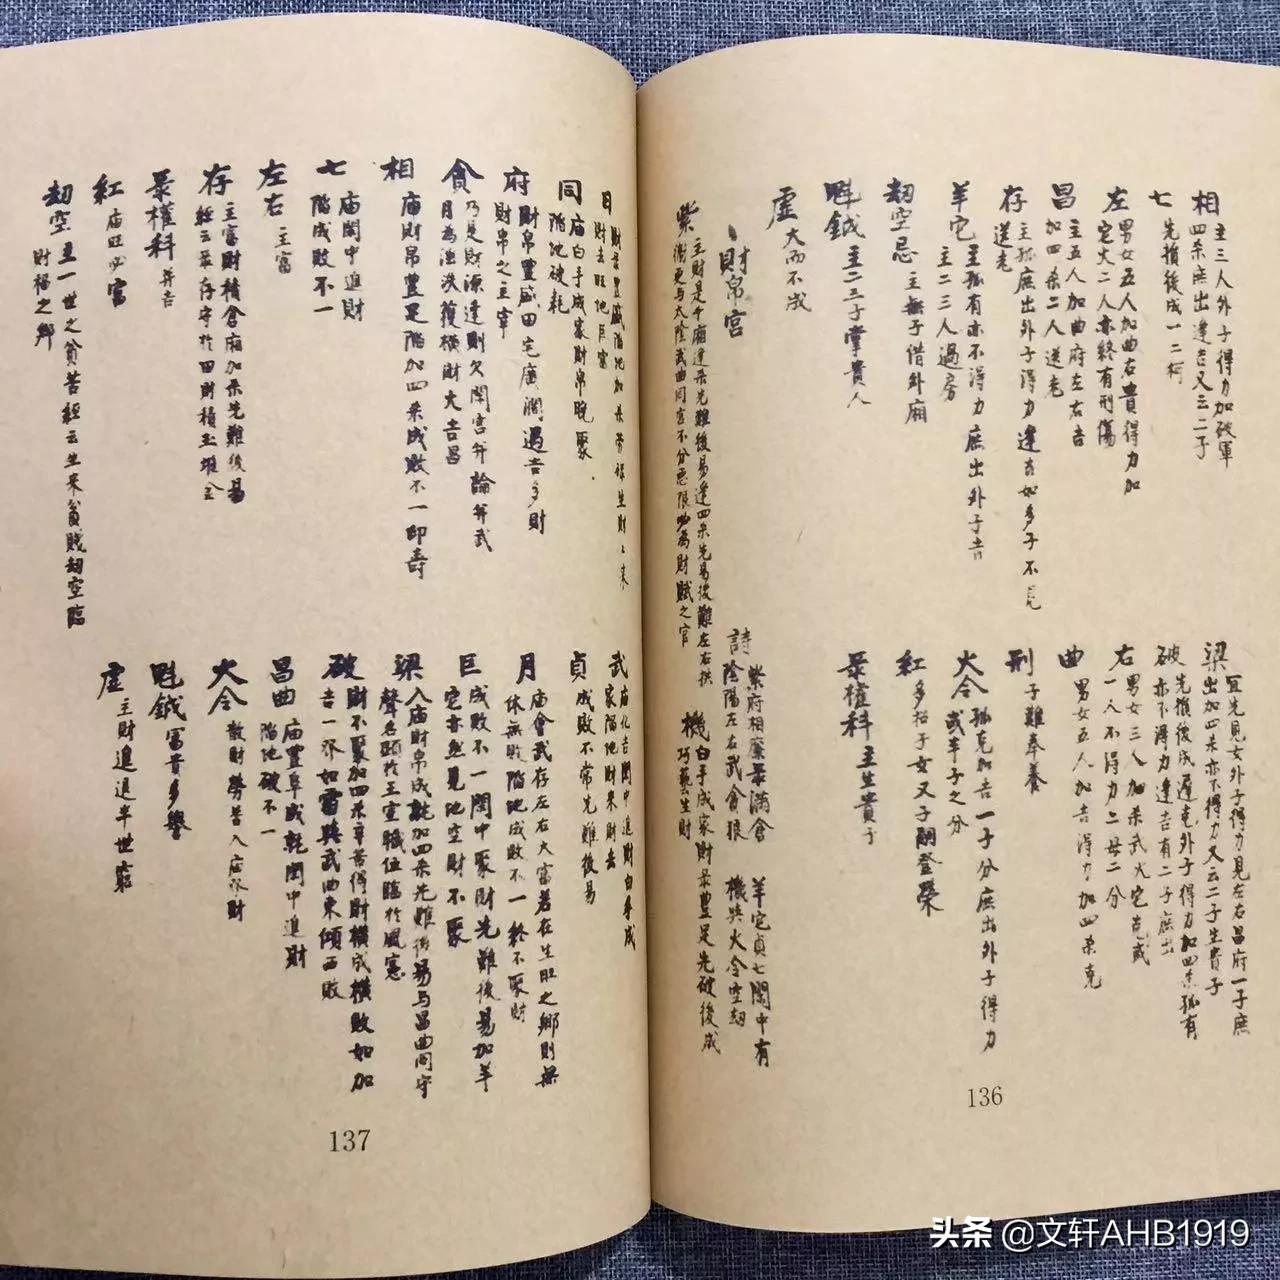 相 主三人外子得力加破軍
四杀庶出逢吉又云二子
七 先損後成一二柯
左 男女五人加曲右貴得力加
宅火二人亦終有刑傷
昌 主五人加曲府左右吉
加四杀二人送老
存 主孤庶出外子得力逢吉如多子不見
送老
羊它 主孤有亦不得力庶出外子吉
主二三人過房
劫空忌 主無子借外廂
魁鉞 主二三子掌貴人
虛 大而不成
梁 宜先見女外子得力見左右昌府一子庶
出加四杀亦不得力又云二子生貴子
破 先損後成遲克外子得力加四杀孤有
亦不得力逢吉有二子庶出
右 男女三人加杀武火它克或
一人不得力二母二分
曲 男女五人加吉得力加四杀克
刑 子難奉養
火令 孤克加吉一子分庶出外子得力
或半子之分
紅 多招子女又子嗣登榮
录權科 主生貴子
財帛宮
紫 主財是千廂逢杀先難後易逢四杀先易後難左右拱
衛更与太陰武曲同宮不分惡限為財賦之官
詩 紫府相廉录滿倉 羊它貞七閑中有
陰陽左右武貪狼 機與火令空劫
機 白手成家財录豊足先破後成
巧藝生財
日 財录豊盛陷地加杀劳碌生財
財去旺地巨富
同 庙白手成家財帛晚聚
陷地破耗
府 財帛豊盛田宅廣濶遇吉多財
財帛之主宰
貪 乃是財源逢則欠閑宮弁論弁武
月為浊洪獲橫財大吉昌
相 庙財帛豊足陷加四杀成敗不一印壽
七 庙閑中進財
陷成敗不一
左右 主富
存 主富財積倉廂加杀先難後易
經云录存守於田財積玉堆金
录權科 弁吉
紅 庙旺必富
劫空 主一世之貧苦經云生來貧賤劫空臨
財福之鄉
武 庙化吉閑中進財白手成
家陷地財來財去
貞 成敗不常先難後易
月 庙會武存左右大富若在生旺之鄉則無
休無敗陷地成敗不一終不聚財
巨 成敗不一閑中聚財先難後易加羊
它亦然見地空財不聚
梁 入庙財帛成就加四杀先難後易与昌曲同守
聲名顕於王室職位臨於風憲
破 財不聚加四杀辛苦得財橫成橫敗如加
吉一介如雷與武曲東傾西敗
昌曲 庙豊阜成就閑中進財
陷地破不一
火令 散財劳苦入庙亦財
魁鉞 富貴多譽
虛 主財進退半世窮
136
137
头条 @文轩AHB1919